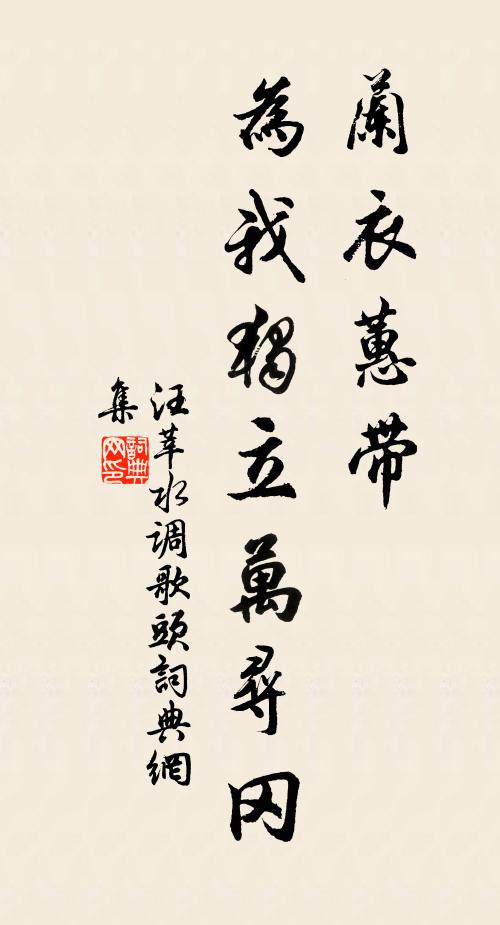 蘭衣蕙帶
為我獨立萬尋冈
汪莘水调歌頭詞典網
集
詞典
网印